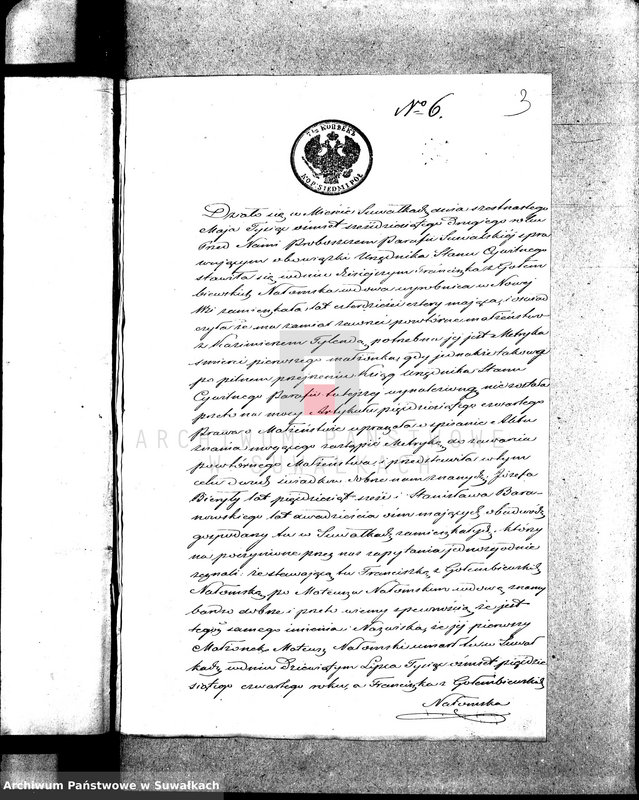 № 6.
3
7½ КОПѢЕКЪ
KOP. SIEDM I PÓŁ
Działo się w Mieście Suwałkach dnia szesnastego
Maja Tysiąc ośmset sześćdziesiątego drugiego roku
Przed Nami Proboszczem Parafii Suwalskiej spra
wującym obowiązki Urzędnika Stanu Cywilnego
stawiła się w dniu dzisiejszym Franciszka z Gołem
biewskich Nałomska wdowa wyrobnica w Nowej
Wsi zamieszkała lat czterdzieści cztery mająca, i oświad
czyła że ma zamiar zawrzeć powtórne małżeństwo
z Kazimierzem potrzebną jej jest Metryka
śmierci pierwszego małżonka, gdy jednakże takowa
po pilnem przejrzeniu Ksiąg Urzędnika Stanu
Cywilnego Parafii tutejszej wynalezioną nie została
przeto na mocy Artykułu pięćdziesiątego czwartego
Prawa o Małżeństwie upraszała o spisanie Aktu
znania mogącego zastąpić Metrykę do zawarcia
powtórnego Małżeństwa, i przedstawiła w tym
celu dwóch świadków dobrze nam znanych Józefa
lat pięćdziesiąt sześć i Stanisława Bara
nowskiego lat dwadzieścia ośm mających, obudwóch
gospodarzy tu w Suwałkach zamieszkałych, którzy
na poczynione przez nas zapytania jednozgodnie
zeznali: że stawającą tu Franciszkę z Gołembiewskich
Nałomską po Mateuszu Nałomskim wdowę znamy
bardzo dobrze i przeto wiemy z pewnością że jest
tegoż samego imienia i Nazwiska, że jej pierwszy
Małżonek Mateusz Nałomski umarł tu w Suwał
kach w dniu Dziewiątym Lipca Tysiąc ośmset pięćdzie
siątego czwartego roku, a Franciszka z Gołembiewskich
Nałomska
ARCHIWUM PAŃSTWOWE
W SUWAŁKACH
Archiwum Państwowe w Suwałkach